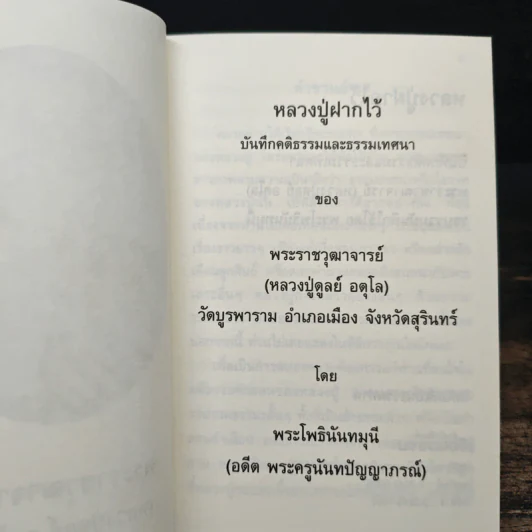 หลวงปู่ฝากไว้
บันทึกคติธรรมและธรรมเทศนา
ของ
พระราชวุฒาจารย์
(หลวงปู่ดูลย์ อตุโล)
วัดบูรพาราม อำเภอเมือง จังหวัดสุรินทร์
โดย
พระโพธินันทมุนี
(อดีต พระครูนันทปัญญาภรณ์)